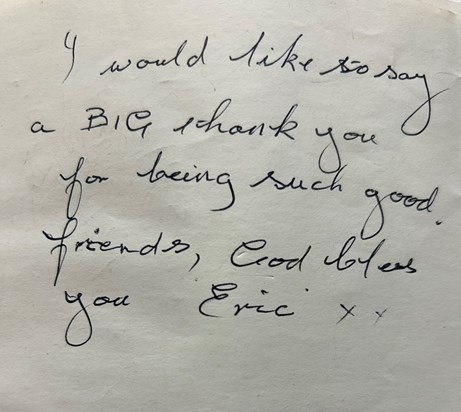 I would like to say
a BIG thank you
for being such good
friends, God bless
you Eric x x